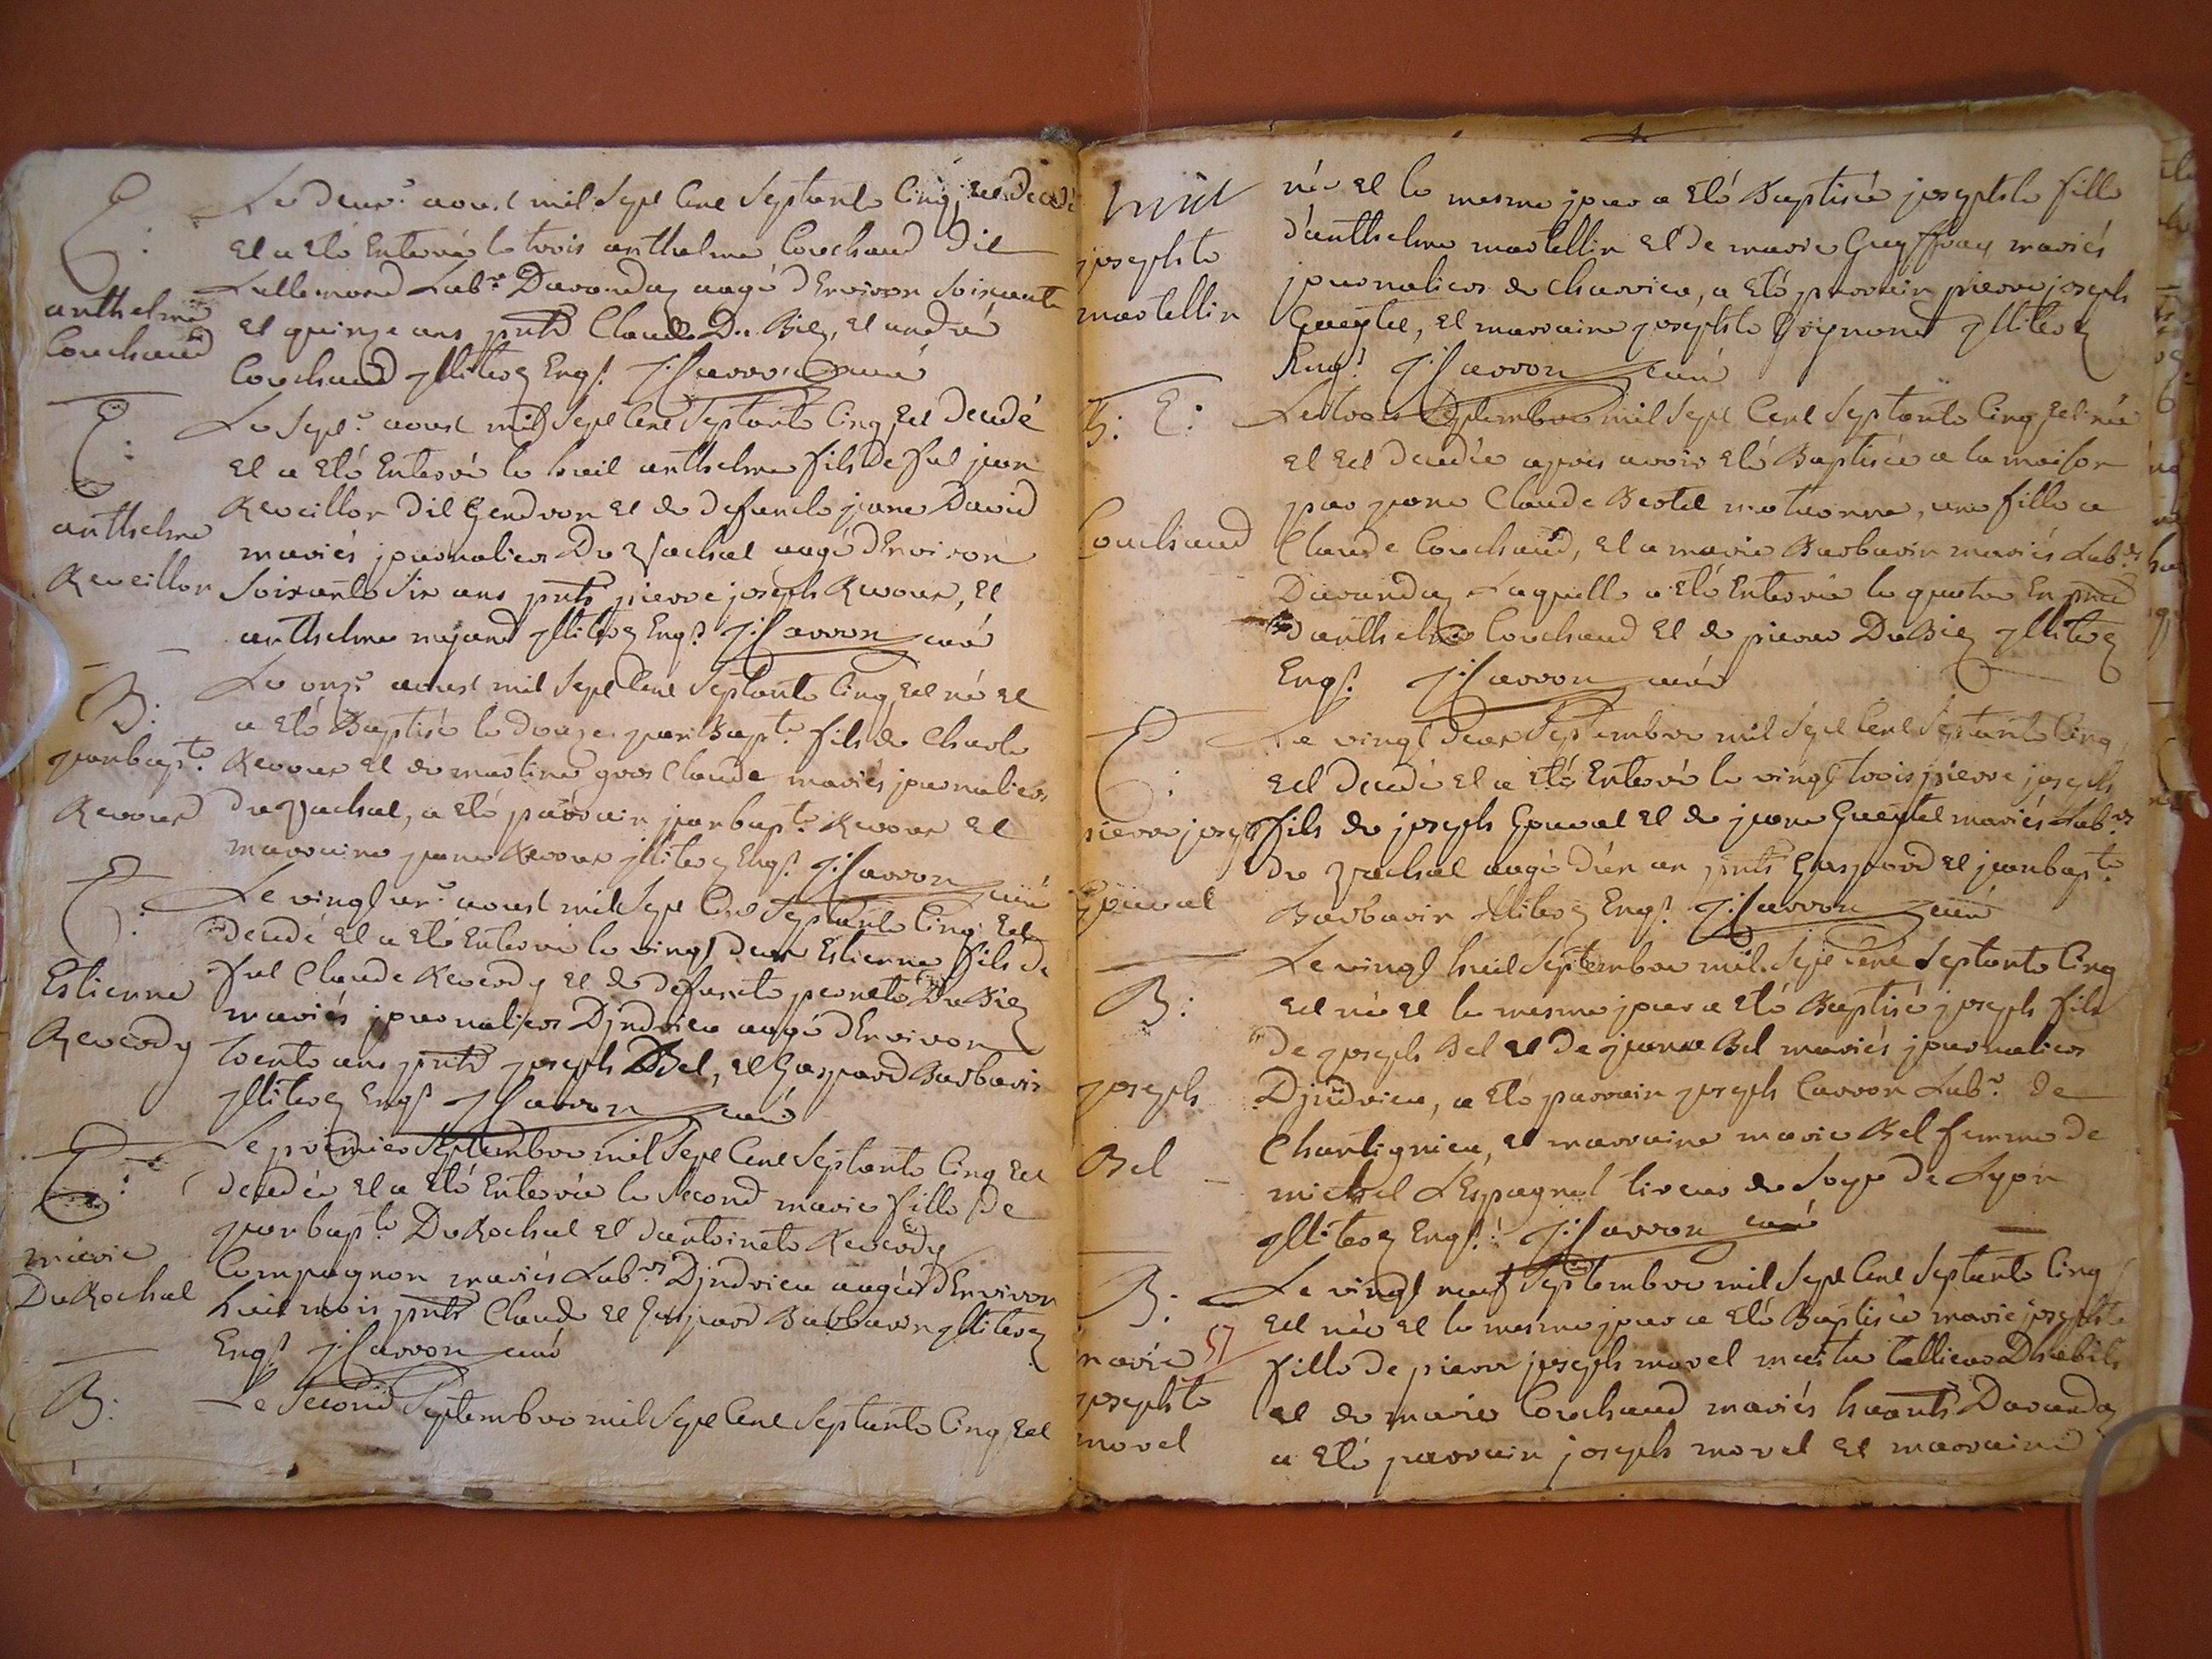 E:
anthelme
Couchaud
Le deux.e aoust mil sept cent septante cinq, est decedé
et a eté enterré le trois anthelme Couchaud dit
Lallemand Lab.r Davanday aagé d'environ soixante
et quinze ans pnts Claude Du Biez, et andré
Couchaud illiterez Enqs. J: Carron curé
E:
anthelme
Reveillon
Le sept.e aoust mil sept cent septante cinq est decedé
et a eté enterré le huit anthelme fils de fut jean
Reveillon dit Gendron et de defuncte jeane David
mariés journaliers Du Zachat aagé d'environ
soixante six ans pnts pierre joseph Revour, et
anthelme mejand illiterez Enqs. J: Carron curé
B:
jeanbapt.e
Revour
Le onz.e aoust mil sept cent septante cinq est né et
a eté Baptisé le douze jean Bapt.e fils de Charle
Revour et de martine gros Claude mariés journaliers
du Zachat, a eté parrain jeanbapt.e Revour et
marraine jeane Revour illiterez Enqs. J: Carron curé
E:
Estienne
Reverdy
Le vingt un.e aoust mil sept cent septante cinq est
decedé et a eté enterré le vingt deux Estienne fils de
fut Claude Reverdy et de defuncte pernete Du Biez
mariés journaliers D'jndrieu aagé d'environ
trente ans pnts joseph Bel, et Gaspard Barbarin
illiterez Enqs. J: Carron curé
E:
marie
DuRochat
Le premier septembre mil sept cent septante cinq est
decedée et a eté enterrée le second marie fille de
jeanbapt.e DuRochat et d'antoinete Reverdy
Compagnon mariés Lab.rs D'jndrieu aagée d'environ
huit mois pnts Claude et Gaspard Barbarin illiterez
Enqs. J: Carron curé
B:
Le second septembre mil sept cent septante cinq est
josephte
martellin
née et le mesme jour a eté Baptisée josephte fille
d'anthelme martellin et de marie Guyffray mariés
journaliers de Charvieu, a eté parrain pierre joseph
Gueytel, et marraine josephte Grignond illiterez
Enqs. J: Carron curé
B: E:
Couchaud
Le trois septembre mil sept cent septante cinq est née
et est decedée apres avoir eté Baptisée a la maison
par jeane Claude Bertet matronne, une fille a
Claude Couchaud, et a marie Barbarin mariés Lab.rs
Davanday laquelle a eté enterrée le quatre en pnce
d'anthelme Couchaud et de pierre DuBiez illiterez
Enqs. J: Carron curé
E:
pierre joseph
Gouvat
Le vingt deux septembre mil sept cent septante cinq
est decedé et a eté enterré le vingt trois pierre joseph
fils de joseph Gouvat et de jeane Gueytel mariés Lab.rs
du Zachat aagé d'un an pnts Gaspard et jeanbapt.e
Barbarin illiterez Enqs. J: Carron curé
B:
joseph
Bel
Le vingt huit septembre mil sept cent septante cinq
est né et le mesme jour a eté Baptisé joseph fils
de joseph Bel et de jeane Bel mariés journaliers
D'jndrieu, a eté parrain joseph Carron Lab.r de
Chantignieu, et marraine marie Bel femme de
michel L'Espagnol tireur de soye de Lyon
illiterez Enqs. J: Carron curé
B:
marie 57
josephte
morel
Le vingt neuf septembre mil sept cent septante cinq
est née et le mesme jour a eté Baptisée marie josephte
fille de pierre joseph morel maitre tallieur D'habits
et de marie Couchaud mariés hants Davanday
a eté parrain joseph morel et marraine